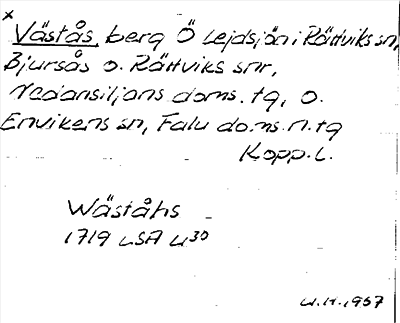 x
Västås, berg Ö Lejdsjön i Rättviks sn,
Bjursås o. Rättviks snr,
Nedansiljans doms. tg, o.
Envikens sn, Falu doms. n. tg
Kopp. l.
Wäståhs
1719 LSA U30
U.H. 1957